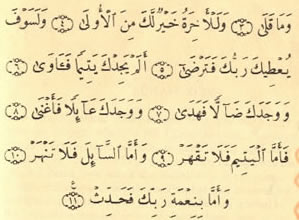 وَمَا قَلَىٰ ﴿٣﴾ وَلَلْـَٔاخِرَةُ خَيْرٌ لَّكَ مِنَ ٱلْأُولَىٰ ﴿٤﴾ وَلَسَوْفَ
يُعْطِيكَ رَبُّكَ فَتَرْضَىٰٓ ﴿٥﴾ أَلَمْ يَجِدْكَ يَتِيمًا فَـَٔاوَىٰ ﴿٦﴾
وَوَجَدَكَ ضَآلًّا فَهَدَىٰ ﴿٧﴾ وَوَجَدَكَ عَآئِلًا فَأَغْنَىٰ ﴿٨﴾
فَأَمَّا ٱلْيَتِيمَ فَلَا تَقْهَرْ ﴿٩﴾ وَأَمَّا ٱلسَّآئِلَ فَلَا تَنْهَرْ ﴿١٠﴾
وَأَمَّا بِنِعْمَةِ رَبِّكَ فَحَدِّثْ ﴿١١﴾